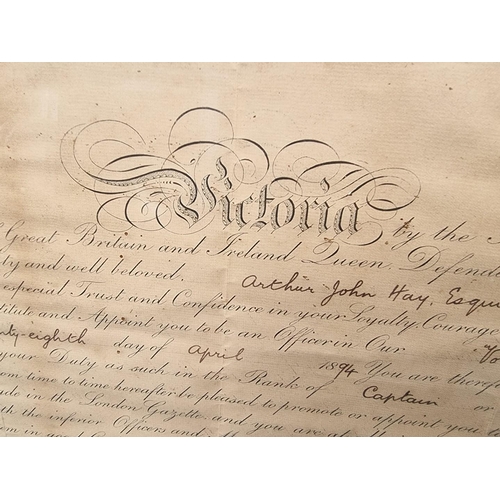 Victoria by the
Great Britain and Ireland Queen, Defend
ty and well beloved, Arthur John Hay, Esqu
especial Trust and Confidence in your Loyalty, Courag
titute and Appoint you to be an Officer in Our
ty-eighth day of April 1894 You are there
your Duty as such in the Rank of Captain or
om time to time hereafter be pleased to promote or appoint you
ade in the London Gazette, and you are at
th the inferior Officers and
em in good